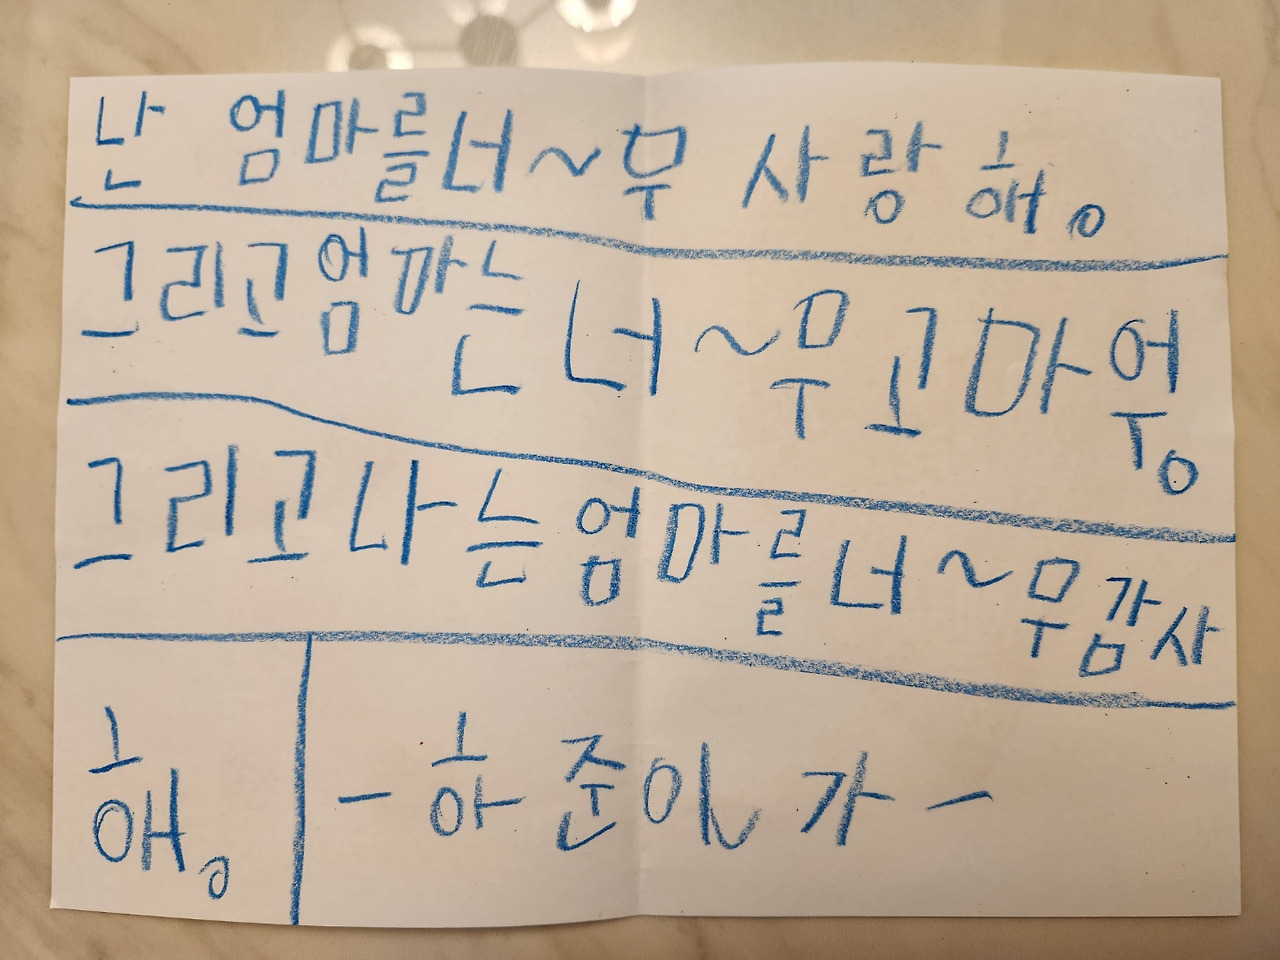 난 엄마를너~무 사랑해。
그리고엄마는 너~무고마워。
그리고나는엄마를너~무감사
해。
-하준이가-